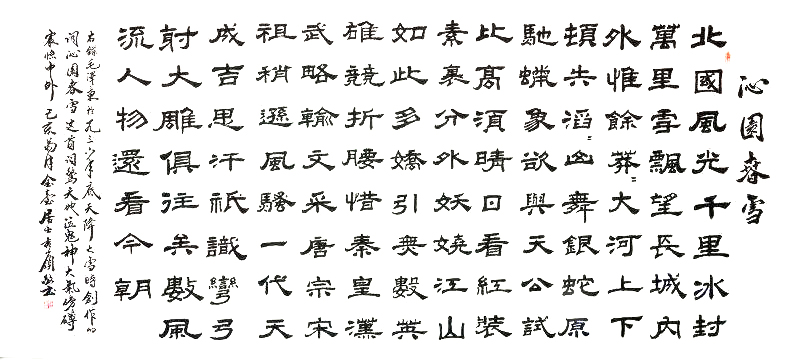 沁園春雪
北國風光千里冰封
萬里雪飄望長城內
外惟餘莽〻大河上下
頓失滔〻山舞銀蛇原
馳蠟象欲與天公試
比高須晴日看紅裝
素裹分外妖嬈江山
如此多嬌引無數英
雄競折腰惜秦皇漢
武略輸文采唐宗宋
祖稍遜風騷一代天
成吉思汗祇識彎弓
射大雕俱往矣數風
流人物還看今朝
右錄毛澤東於一九三六年底天降大雪時創作的
詞沁園春雪這首詞驚天地泣鬼神大氣磅礴
震惊中外 己亥 月 居士 書